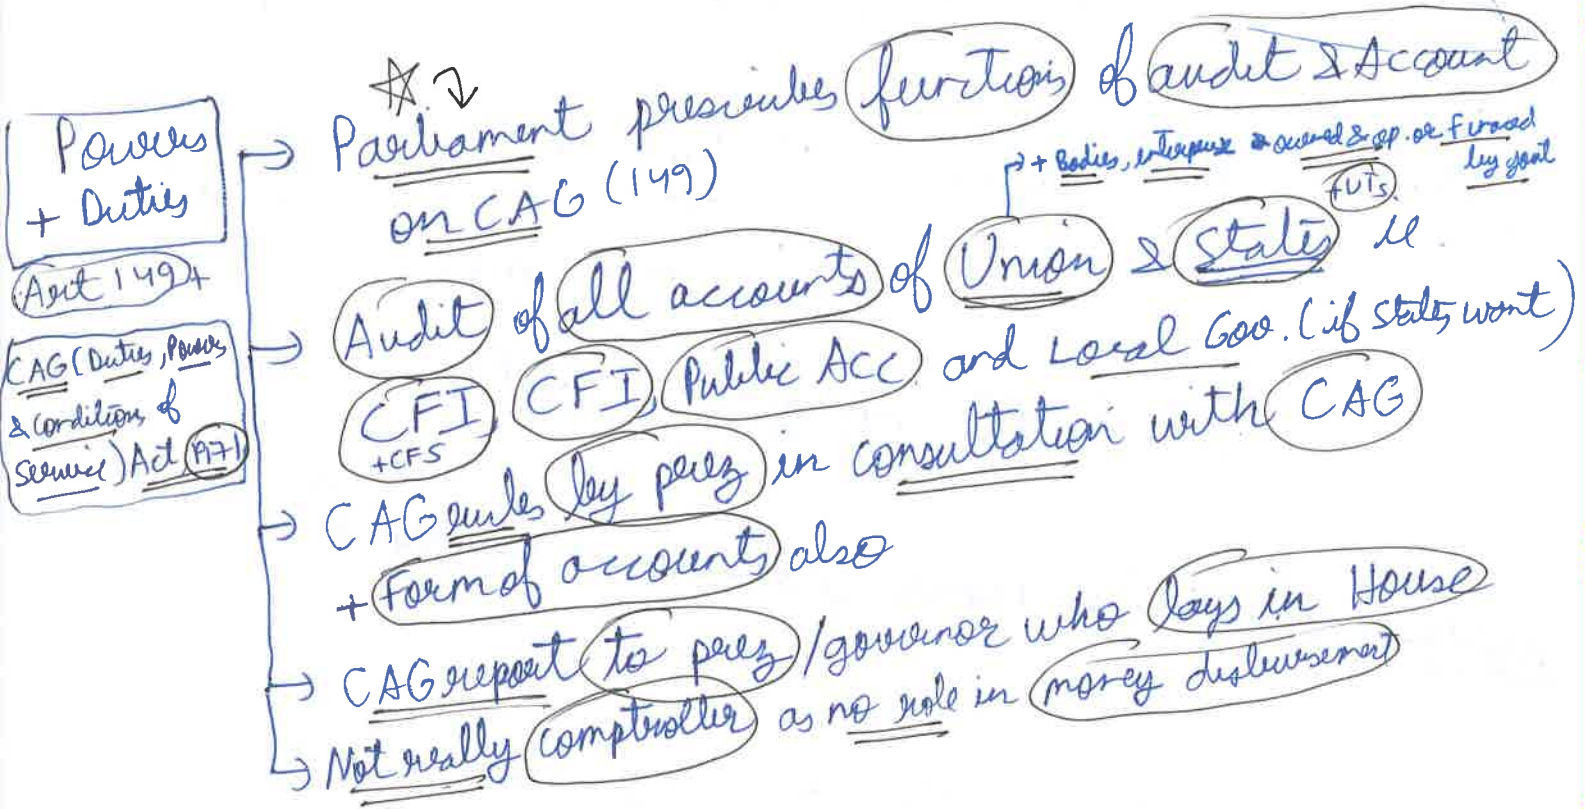 Powers
+ Duties
Art 149 +
CAG (Duties, Powers
& Conditions of
Service) Act 1971
Parliament prescribes functions of audit & Account
on CAG (149)
+ Bodies, enterprise owned & op. or financed
by govt
Audit of all accounts of Union & States
+UTs
CFI, CFI, Public Acc and Local Gov. (if states want)
+CFS
CAG rules by prez in consultation with CAG
+ Form of accounts also
CAG report to prez/governor who lays in House
Not really comptroller as no role in money disbursement